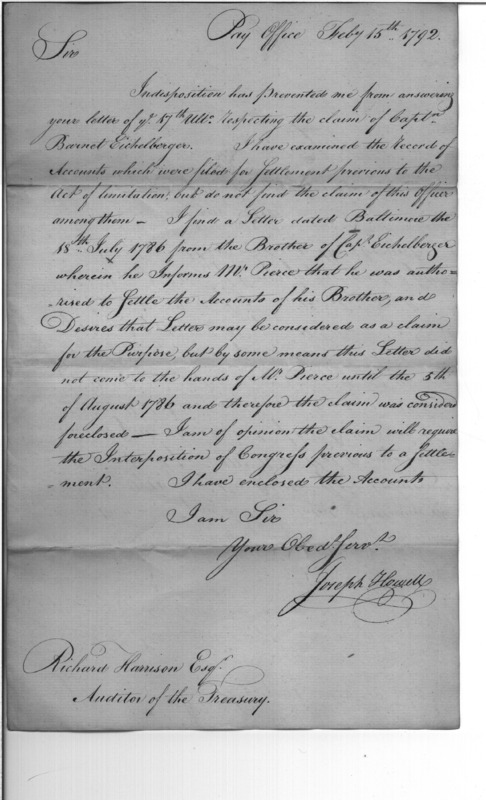 Pay Office Feby 15th 1792.
Sir
Indisposition has prevented me from answering
your letter of ye 17th Ulto respecting the claim of Captn
Barnet Eichelberger. I have examined the Record of
Accounts which were filed for Settlement previous to the
Act of limitation, but do not find the claim of this Officer
among them — I find a Letter dated Baltimore the
18th July 1786 from the Brother of Capt Eichelberger
wherein he Informs Mr Pierce that he was autho=
rized to Settle the Accounts of his Brother, and
Desires that Letter may be considered as a claim
for the Purpose, but by some means this Letter did
not come to the hands of Mr Pierce until the 5th
of August 1786 and therefore the claim was considerd
foreclosed — I am of opinion the claim will require
the Interposition of Congress previous to a settle=
ment. I have enclosed the Accounts
I am Sir
Your Obedt Servt
Joseph Howell
Richard Harrison Esqr.
Auditor of the Treasury.